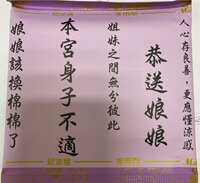 人心存良善，更應懂涼感
恭送娘娘
姐妹之間無分彼此
本宮身子不適
娘娘該換棉棉了